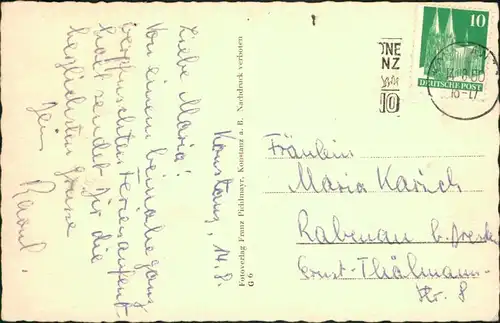 Konstanz, 14.8.
Liebe Maria!
Von einem beinahe ganz
verpfuschten Ferienaufent-
halt sendet Dir die
herzlichsten Grüsse
Dein
Raoul.
Fotoverlag Franz Pichlmayr, Konstanz a. B. Nachdruck verboten
G 6
10
DEUTSCHE POST
NE
NZ
10
16-17
Fräulein
Maria Karsch
Rabenau b. Dresden
Ernst-Thälmann-
Str. 8